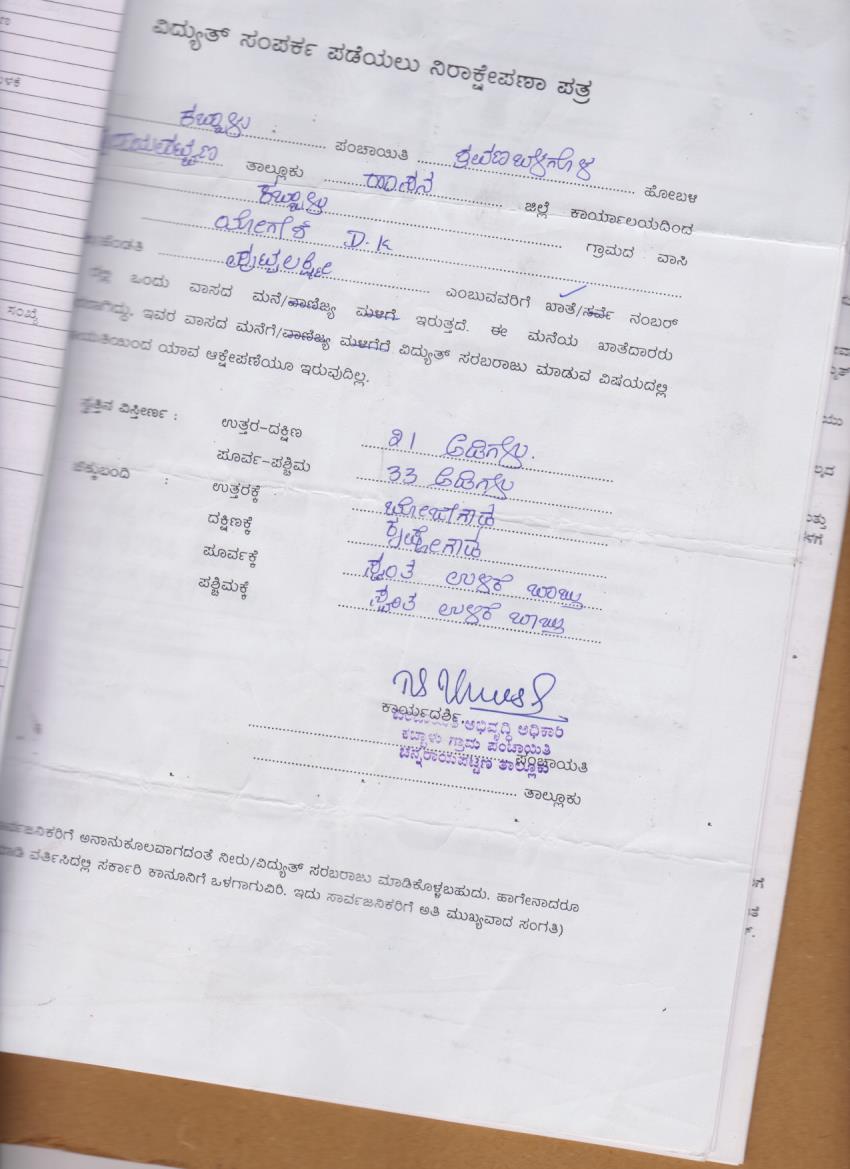 ವಿದ್ಯುತ್ ಸಂಪರ್ಕ ಪಡೆಯಲು ನಿರಾಕ್ಷೇಪಣಾ ಪತ್ರ
ಕಬ್ಬಾಳು ಪಂಚಾಯಿತಿ ಶ್ರವಣಬೆಳಗೊಳ ಹೋಬಳಿ
ರಾಯಪಟ್ಟಣ ತಾಲ್ಲೂಕು ಹಾಸನ ಜಿಲ್ಲೆ ಕಾರ್ಯಾಲಯದಿಂದ
ಕಬ್ಬಾಳು ಗ್ರಾಮದ ವಾಸಿ
ಯೋಗೇಶ D.K
ಪುಟ್ಟಲಕ್ಷ್ಮೀ ಎಂಬುವವರಿಗೆ ಖಾತೆ/ಸರ್ವೆ ನಂಬರ್
ಒಂದು ವಾಸದ ಮನೆ/ವಾಣಿಜ್ಯ ಮಳಿಗೆ ಇರುತ್ತದೆ. ಈ ಮನೆಯ ಖಾತೆದಾರರು
ಇವರ ವಾಸದ ಮನೆಗೆ/ವಾಣಿಜ್ಯ ಮಳಿಗೆಗೆ ವಿದ್ಯುತ್ ಸರಬರಾಜು ಮಾಡುವ ವಿಷಯದಲ್ಲಿ
ಯಾವ ಆಕ್ಷೇಪಣೆಯೂ ಇರುವುದಿಲ್ಲ.
ಸ್ವತ್ತಿನ ವಿಸ್ತೀರ್ಣ : ಉತ್ತರ-ದಕ್ಷಿಣ 21 ಅಡಿಗಳು.
ಪೂರ್ವ-ಪಶ್ಚಿಮ 33 ಅಡಿಗಳು
ಚೆಕ್ಕುಬಂದಿ : ಉತ್ತರಕ್ಕೆ
ದಕ್ಷಿಣಕ್ಕೆ
ಪೂರ್ವಕ್ಕೆ ಸ್ವಂತ ಉಳಿಕೆ ಬಾಬ್ತು
ಪಶ್ಚಿಮಕ್ಕೆ ಸ್ವಂತ ಉಳಿಕೆ ಬಾಬ್ತು
ಕಾರ್ಯದರ್ಶಿ,
ಅಭಿವೃದ್ಧಿ ಅಧಿಕಾರಿ
ಕಬ್ಬಾಳು ಗ್ರಾಮ ಪಂಚಾಯಿತಿ
ಪಂಚಾಯತಿ
ಚನ್ನರಾಯಪಟ್ಟಣ ತಾಲ್ಲೂಕು
ತಾಲ್ಲೂಕು
ಅನಾನುಕೂಲವಾಗದಂತೆ ನೀರು/ವಿದ್ಯುತ್ ಸರಬರಾಜು ಮಾಡಿಕೊಳ್ಳಬಹುದು. ಹಾಗೇನಾದರೂ
ವರ್ತಿಸಿದಲ್ಲಿ ಸರ್ಕಾರಿ ಕಾನೂನಿಗೆ ಒಳಗಾಗುವಿರಿ. ಇದು ಸಾರ್ವಜನಿಕರಿಗೆ ಅತಿ ಮುಖ್ಯವಾದ ಸಂಗತಿ)
ಸಂಖ್ಯೆ